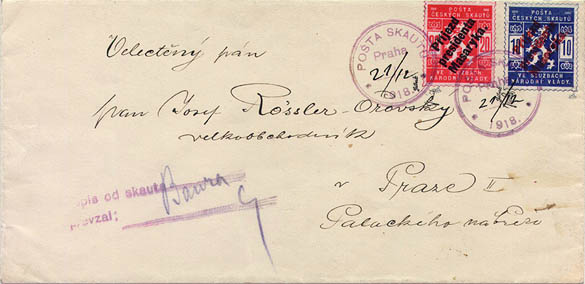 POŠTA
ČESKÝCH SKAUTŮ
20
Příjezd
presidenta
Masaryka
VE SLUŽBÁCH
NÁRODNÍ VLÁDY.
POŠTA
ČESKÝCH SKAUTŮ
10 10
VE SLUŽBÁCH
NÁRODNÍ VLÁDY.
POŠTA SKAUTŮ
Praha
21/12
* 1918. *
Praha
21/12
* 1918. *
Velectěný pán
pan Josef Rössler-Ořovský
velkoobchodník
v Praze II
Palackého nábřeží
pis od skauta
převzal: